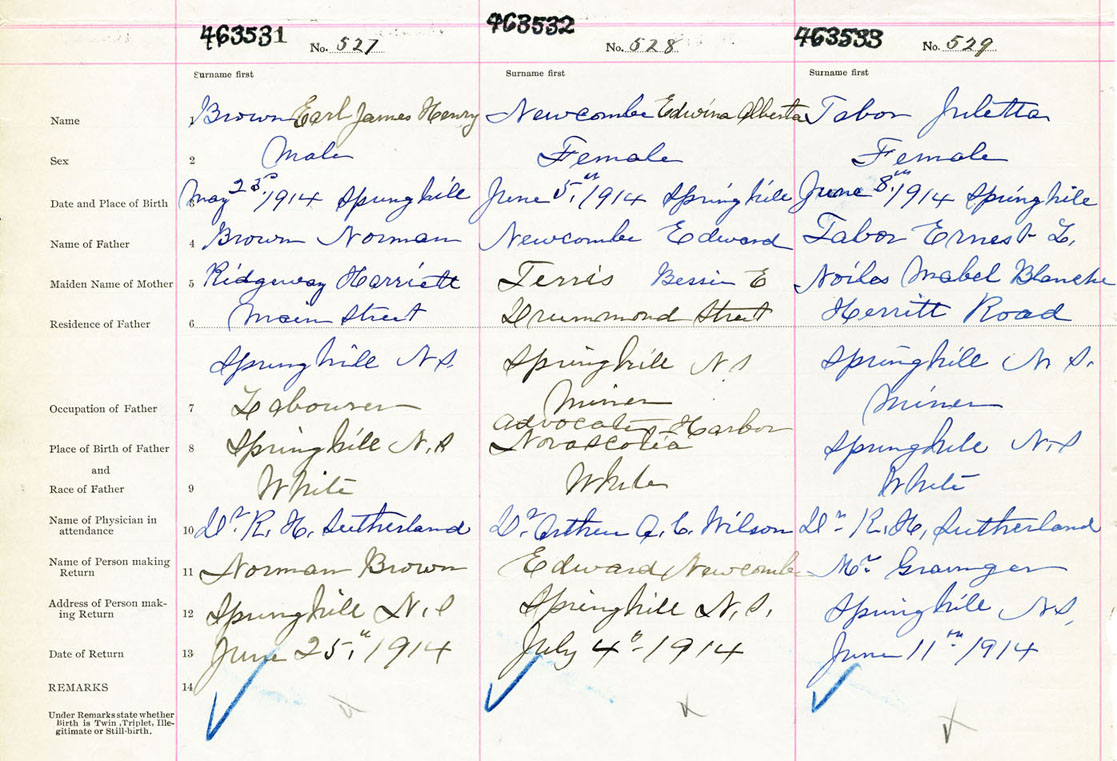 463531 No. 527 463532 No. 528 463533 No. 529
Surname first Surname first Surname first
Name 1 Brown Earl James Henry Newcombe Edwina Alberta Tabor Juletta
Sex 2 Male Female Female
Date and Place of Birth 3 May 23rd 1914 Springhill June 5th 1914 Springhill June 8th 1914 Springhill
Name of Father 4 Brown Norman Newcombe Edward Tabor Ernest L.
Maiden Name of Mother 5 Ridgeway Harriett Terris Bessie E Noiles Mabel Blanche
Residence of Father 6 Main Street Drummond Street Herritt Road
Springhill N.S. Springhill N S Springhill N. S.
Occupation of Father 7 Labourer Miner Miner
Place of Birth of Father 8 Springhill N.S Advocate Harbor Novascotia Springhill N.S
and
Race of Father 9 White White White
Name of Physician in attendance 10 Dr. R. H. Sutherland Dr. Arthur A. C. Wilson Dr. R. H. Sutherland
Name of Person making Return 11 Norman Brown Edward Newcombe Mr Grainger
Address of Person mak-ing Return 12 Springhill N.S Springhill N.S. Springhill N.S.
Date of Return 13 June 25th 1914 July 4th 1914 June 11th 1914
REMARKS 14
Under Remarks state whether
Birth is Twin, Triplet, Ille-
gitimate or Still-birth.